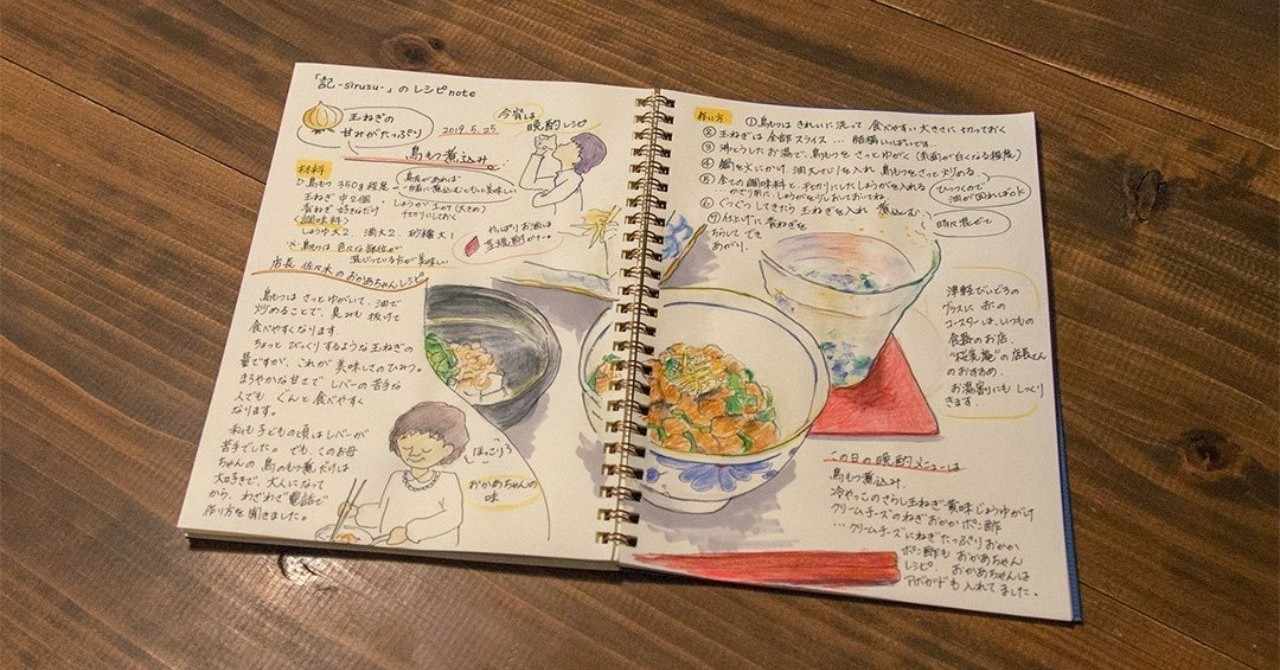 「記-sirusu-」のレシピnote
玉ねぎの
甘みがたっぷり
2019.5.25
今宵は
晩酌レシピ
鳥もつ煮込み
材料
鳥もつ 350g程度
玉ねぎ 中2個
青ねぎ 好きなだけ
鳥皮があれば
一緒に煮込むともい美味しい
しょうが
千切りにしておく
〈調味料〉
しょうゆ大2. 酒大2. 砂糖大1
※鳥もつは、色々な部位が
混じっている方が美味しい
やっぱりお酒は
店長 佐々木のおかあちゃんレシピ
鳥もつはさっとゆがいて、油で
炒めることで、臭みも抜けて
食べやすくなります.
ちょっとびっくりするような玉ねぎの
量ですが、これが美味しさのひみつ。
まろやかな甘さで、レバーの苦手な
人でも ぐんと食べやすく
なります。
私も子どもの頃はレバーが
苦手でした。でも、このお母
ちゃんの鳥のもつ煮だけは
大好きで、大人になって
から、わざわざ電話で
作り方を聞きました。
ほっこり
おかあちゃんの
味
作り方
①鳥もつは きれいに洗って 食べやすい大きさに切っておく
②玉ねぎは全部スライス… 結構いっぱいです.
③沸とうしたお湯で、鳥もつを さっとゆがく(表面が白くなる程度)
④鍋を火にかけ、油大さじ1を入れ 鳥もつをさっと炒める
⑤全ての調味料と、千切りにしたしょうがを入れる
…かざり用に、しょうがを少しおいておいてね
ひっつくので
油が回ればok
⑥ぐつぐつしてきたら 玉ねぎを入れ 煮込む
時々混ぜて
⑦仕上げに青ねぎを
ちらして でき
あがり.
津軽びいどろの
グラスに 赤の
コースターは、いつもの
食器のお店、
の店長さん
のおすすめ.
お湯割りにもしっくり
きます.
この日の晩酌メニューは
鳥もつ煮込み.
冷やっこのさらし玉ねぎ黄味じょうゆがけ
クリームチーズのねぎおかかポン酢
…クリームチーズにねぎたっぷりおかか
ポン酢も おかあちゃん
レシピ. おかあちゃんは
アボカドも入れてました。